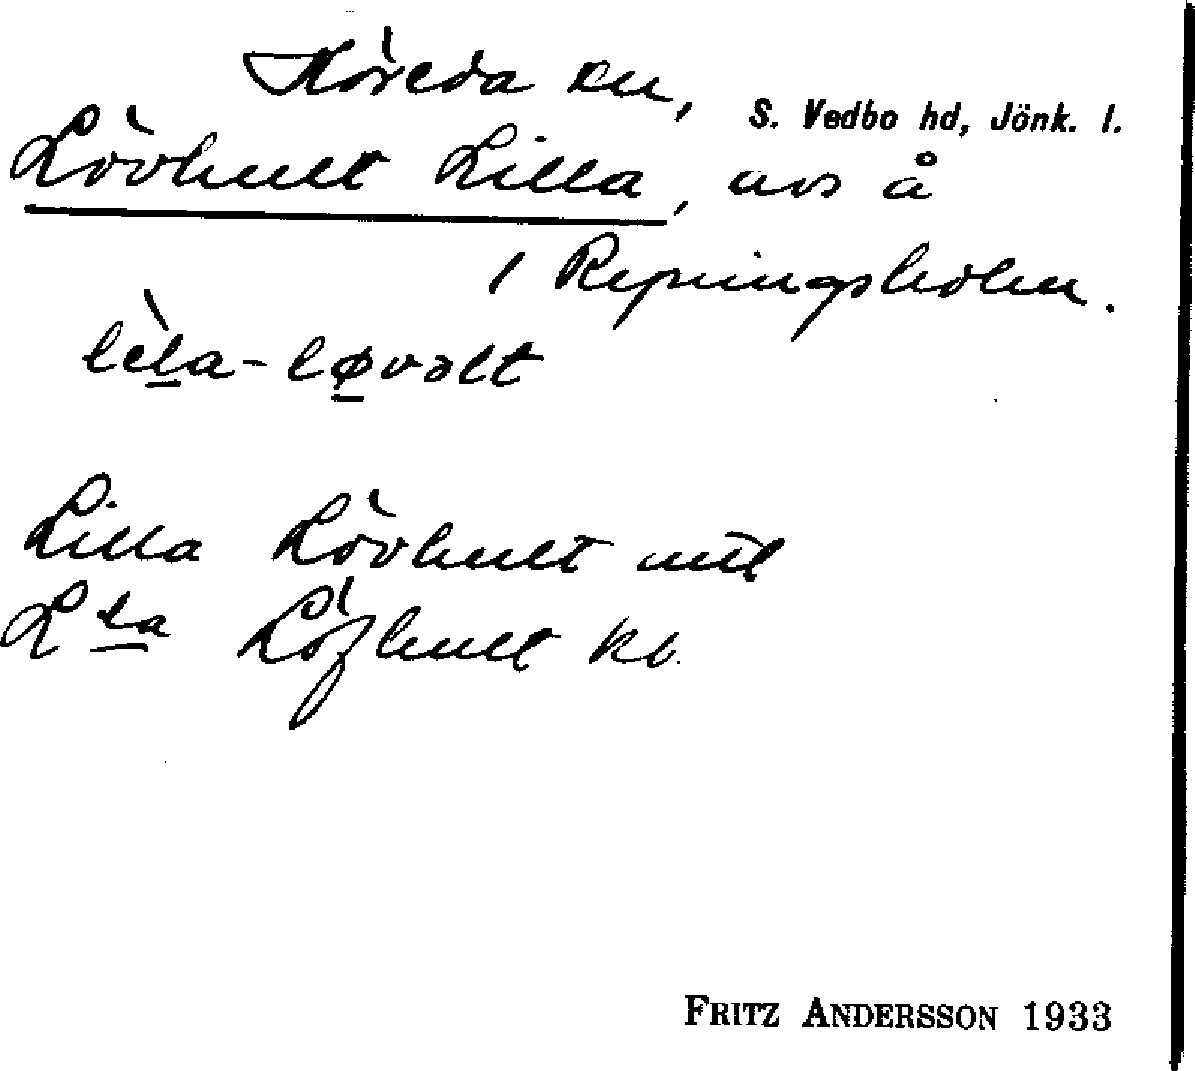 Höreda sn, S. Vedbo hd, Jönk. l.
Lövhult Lilla, avs å
1 Repningsholm.
lèla-løvəlt
Lilla Lövhult mtl
L:la Löfhult kb.
FRITZ ANDERSSON 1933